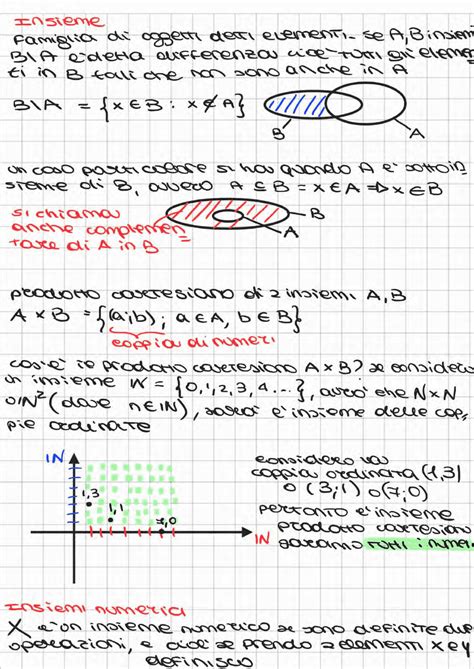 Insieme
Famiglia di oggetti detti elementi. Se A, B insiemi
B\A è detta differenza cioè tutti gli elemen
ti in B tali che non sono anche in A
B\A = {x ∈ B : x ∉ A}
B
A
un caso particolare si ha quando A è sottoin
sieme di B, ovvero A ⊆ B = x ∈ A => x ∈ B
si chiama
anche complemen
tare di A in B
B
A
prodotto cartesiano di 2 insiemi A, B
A × B = {(a;b); a ∈ A, b ∈ B}
coppia di numeri
cos'è il prodotto cartesiano A × B? se considero
un insieme IN = {0,1,2,3,4...}, avrò che N×N
o IN² (dove n ∈ IN), sarà l'insieme delle cop
pie ordinate
IN
1,3
1,1
7,0
IN
considero la
coppia ordinata (1,3)
o (3;1) o (7;0)
pertanto l'insieme
prodotto cartesiano
saranno tutti i numeri
Insiemi numerici
X è un insieme numerico se sono definite due
operazioni, e cioè se prendo 2 elementi x e y
definisco